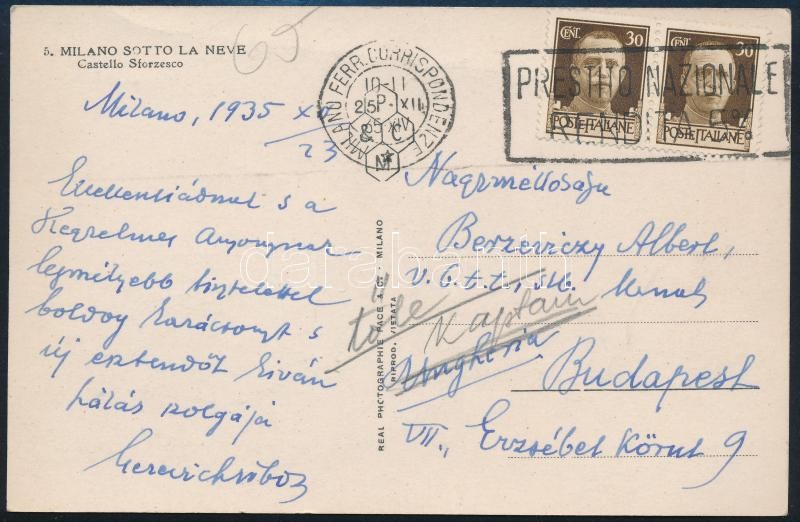 5. MILANO SOTTO LA NEVE
Castello Sforzesco
65
Milano, 1935 XII
23
Excellentiádnak s a
Kegyelmes Asszonynak
legmélyebb tisztelettel
boldog karácsonyt s
új esztendőt kíván
hálás szolgája
Gerevich Tibor
MILANO FERR. CORRISPONDENZE
10-11
25 XII
35 XIV
CENT. 30
POSTE ITALIANE
CENT. 30
POSTE ITALIANE
PRESTITO NAZIONALE
RENDITA 5%
Nagyméltóságu
Berzeviczy Albert,
v.b.t.t., ny.
Budapest
VII., Erzsébet Körut 9
Ungheria
REAL PHOTOGRAPHIE PACE & CI - MILANO
RIPROD. VIETATA
darabanth